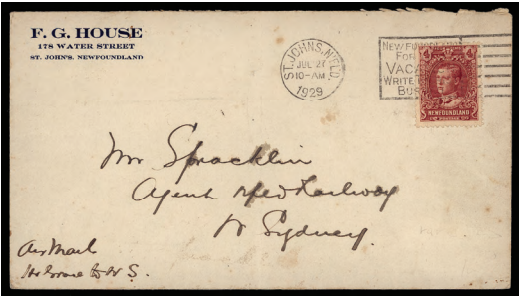 F. G. HOUSE
178 WATER STREET
ST. JOHN'S, NEWFOUNDLAND
ST. JOHN'S, N'FLD.
JUL 27
10-AM
1929
NEWFOUNDLAND
FOR
VACA
WRITE
BUS
4 4
NEWFOUNDLAND
Mr Spracklin
Agent Nfld Railway
N Sydney.
Air Mail
Hr Grace to N S.